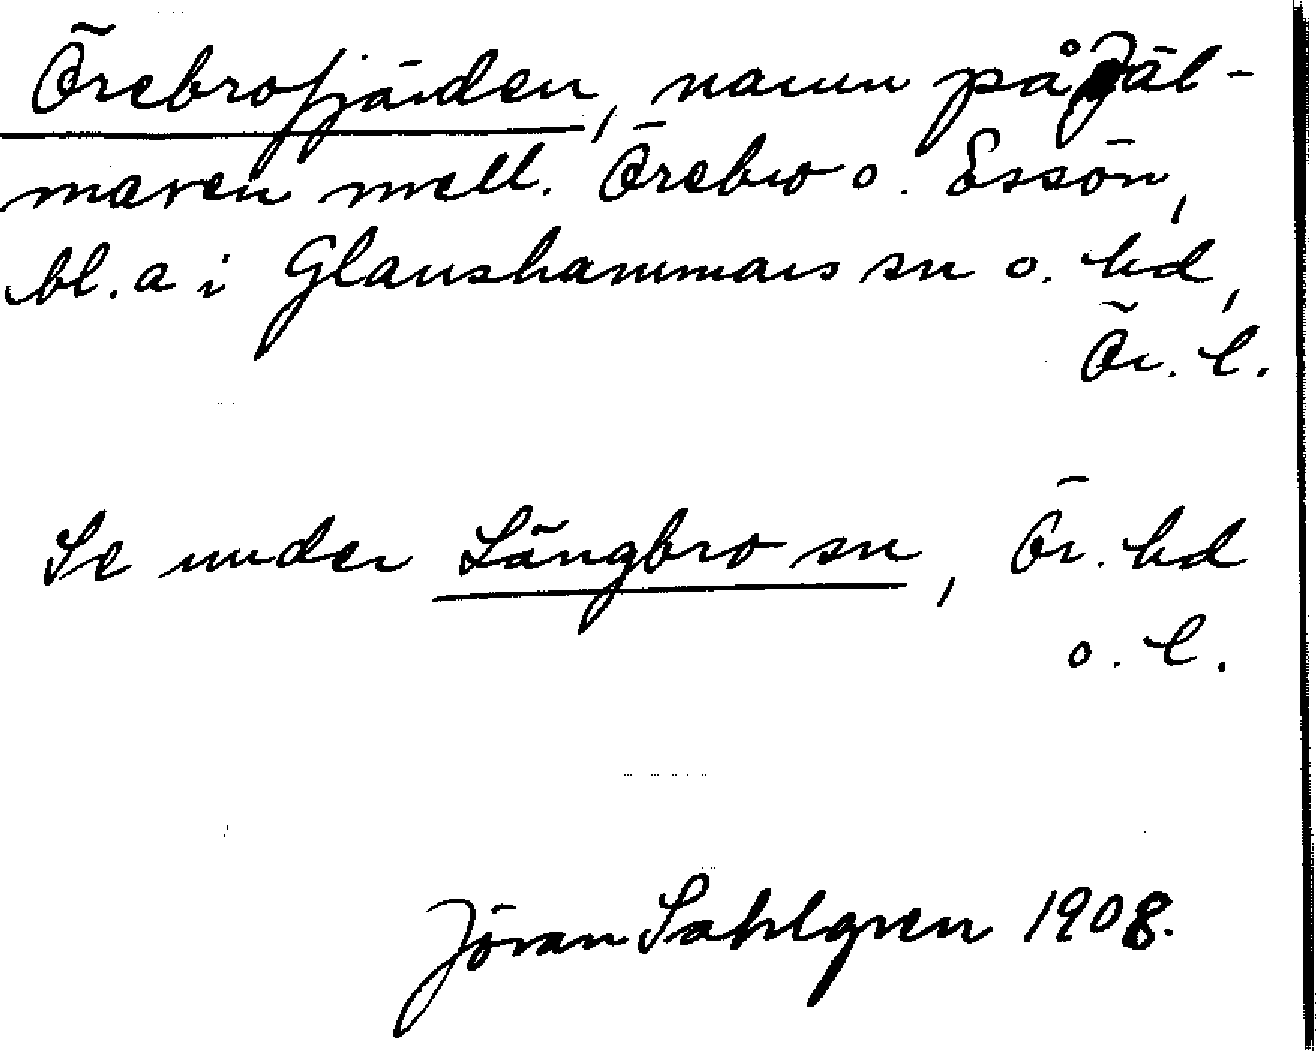 Örebrofjärden, namn på Jäl-
maren mell. Örebro o. Essön,
bl. a i Glanshammars sn o. hd,
Ör. l.
Se under Längbro sn, Ör. hd
o. l.
Jöran Sahlgren 1908.